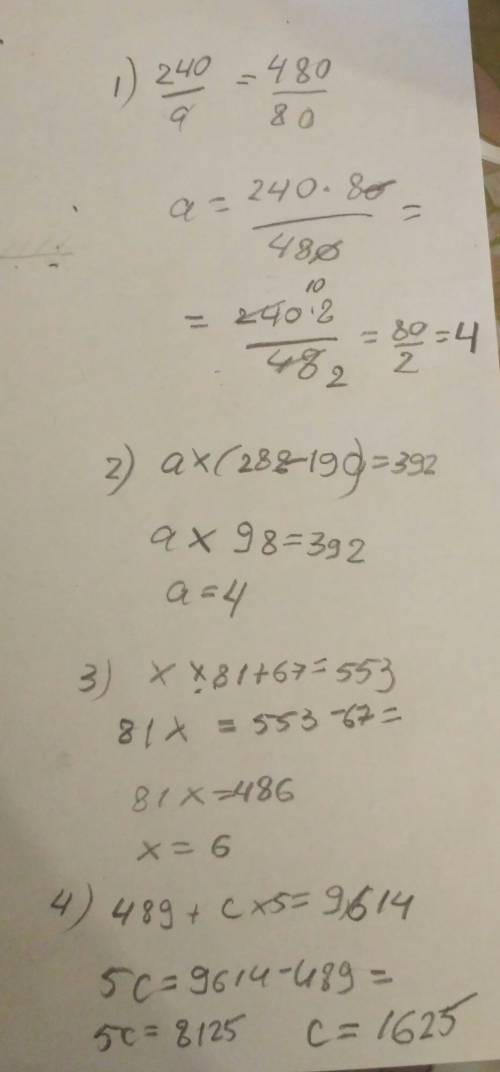 1) 240/a = 480/80
a = 240·80/480 =
= 240·8/48 10 2 = 80/2 = 4
2) a×(288-190)=392
a × 98=392
a=4
3) x × 81+67=553
81x = 553-67=
81x=486
x = 6
4) 489+ c×5=9614
5c=9614-489=
5c=8125 c=1625